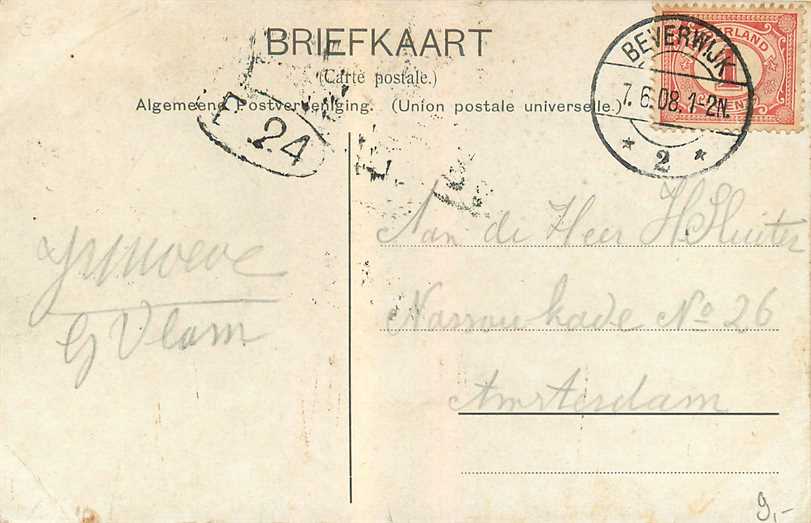 BRIEFKAART
(Carte postale.)
Algemeene Postvereeniging. (Union postale universelle.)
BEVERWIJK
7.6.08.1-2N.
* 2 *
1
24
Aan de Heer H. Sluiter
Nassaukade No 26
Amsterdam
G Vlam
9,-